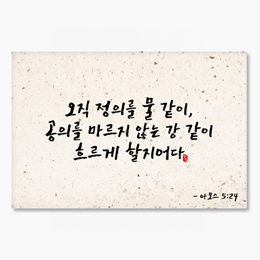 오직 정의를 물 같이,
공의를 마르지 않는 강 같이
흐르게 할지어다.
- 아모스 5:24